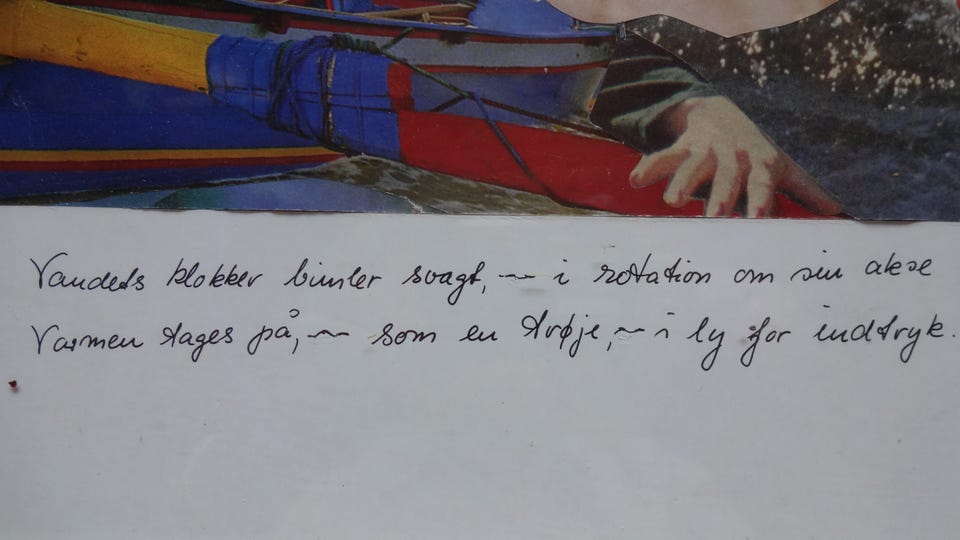 Vandets klokker bimler svagt, ~ i rotation om sin akse
Varmen tages på, ~ som en trøje, ~ i ly for indtryk.